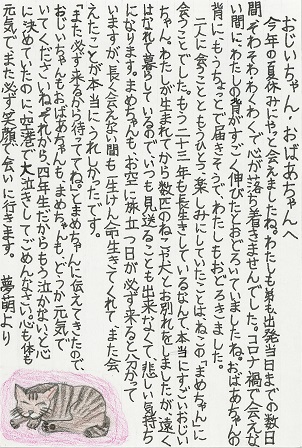 おじいちゃん、おばあちゃんへ
今年の夏休みにやっと会えましたね。わたしも弟も出発当日までの数日
間、ぞわぞわわくわくで、心が落ち着きませんでした。コロナ禍で会えな
い間にわたしの背がすごく伸びたとおどろいていましたね。おばあちゃんの
背にもうちょっとで届きそうで、わたしもおどろきました。
二人に会うこともうひとつ楽しみにしていたことは、ねこの「まめちゃん」に
会うことでした。もう二十三年も長生きしているなんて、本当にすごいおじい
ちゃん。わたしが生まれてから数匹のねこや犬とお別れをしましたが、遠く
はなれて暮らしているので、いつも見送ることも出来なくて、悲しい気持ち
になります。まめちゃんも、お空に旅立つ日が必ず来ると分かって
いますが、長く会えない間も一生けん命生きてくれて、また会
えたことが本当にうれしかったです。
「また必ず来るから待っててね。」とまめちゃんに伝えてきたので、
おじいちゃんもおばあちゃんも、まめちゃんも、どうか元気で
いてくださいね。それから、四年生だからもう泣かないと心
に決めていたのに空港で大泣きしてごめんなさい。心も体も
元気でまた必ず笑顔で会いに行きます。
夢萌より